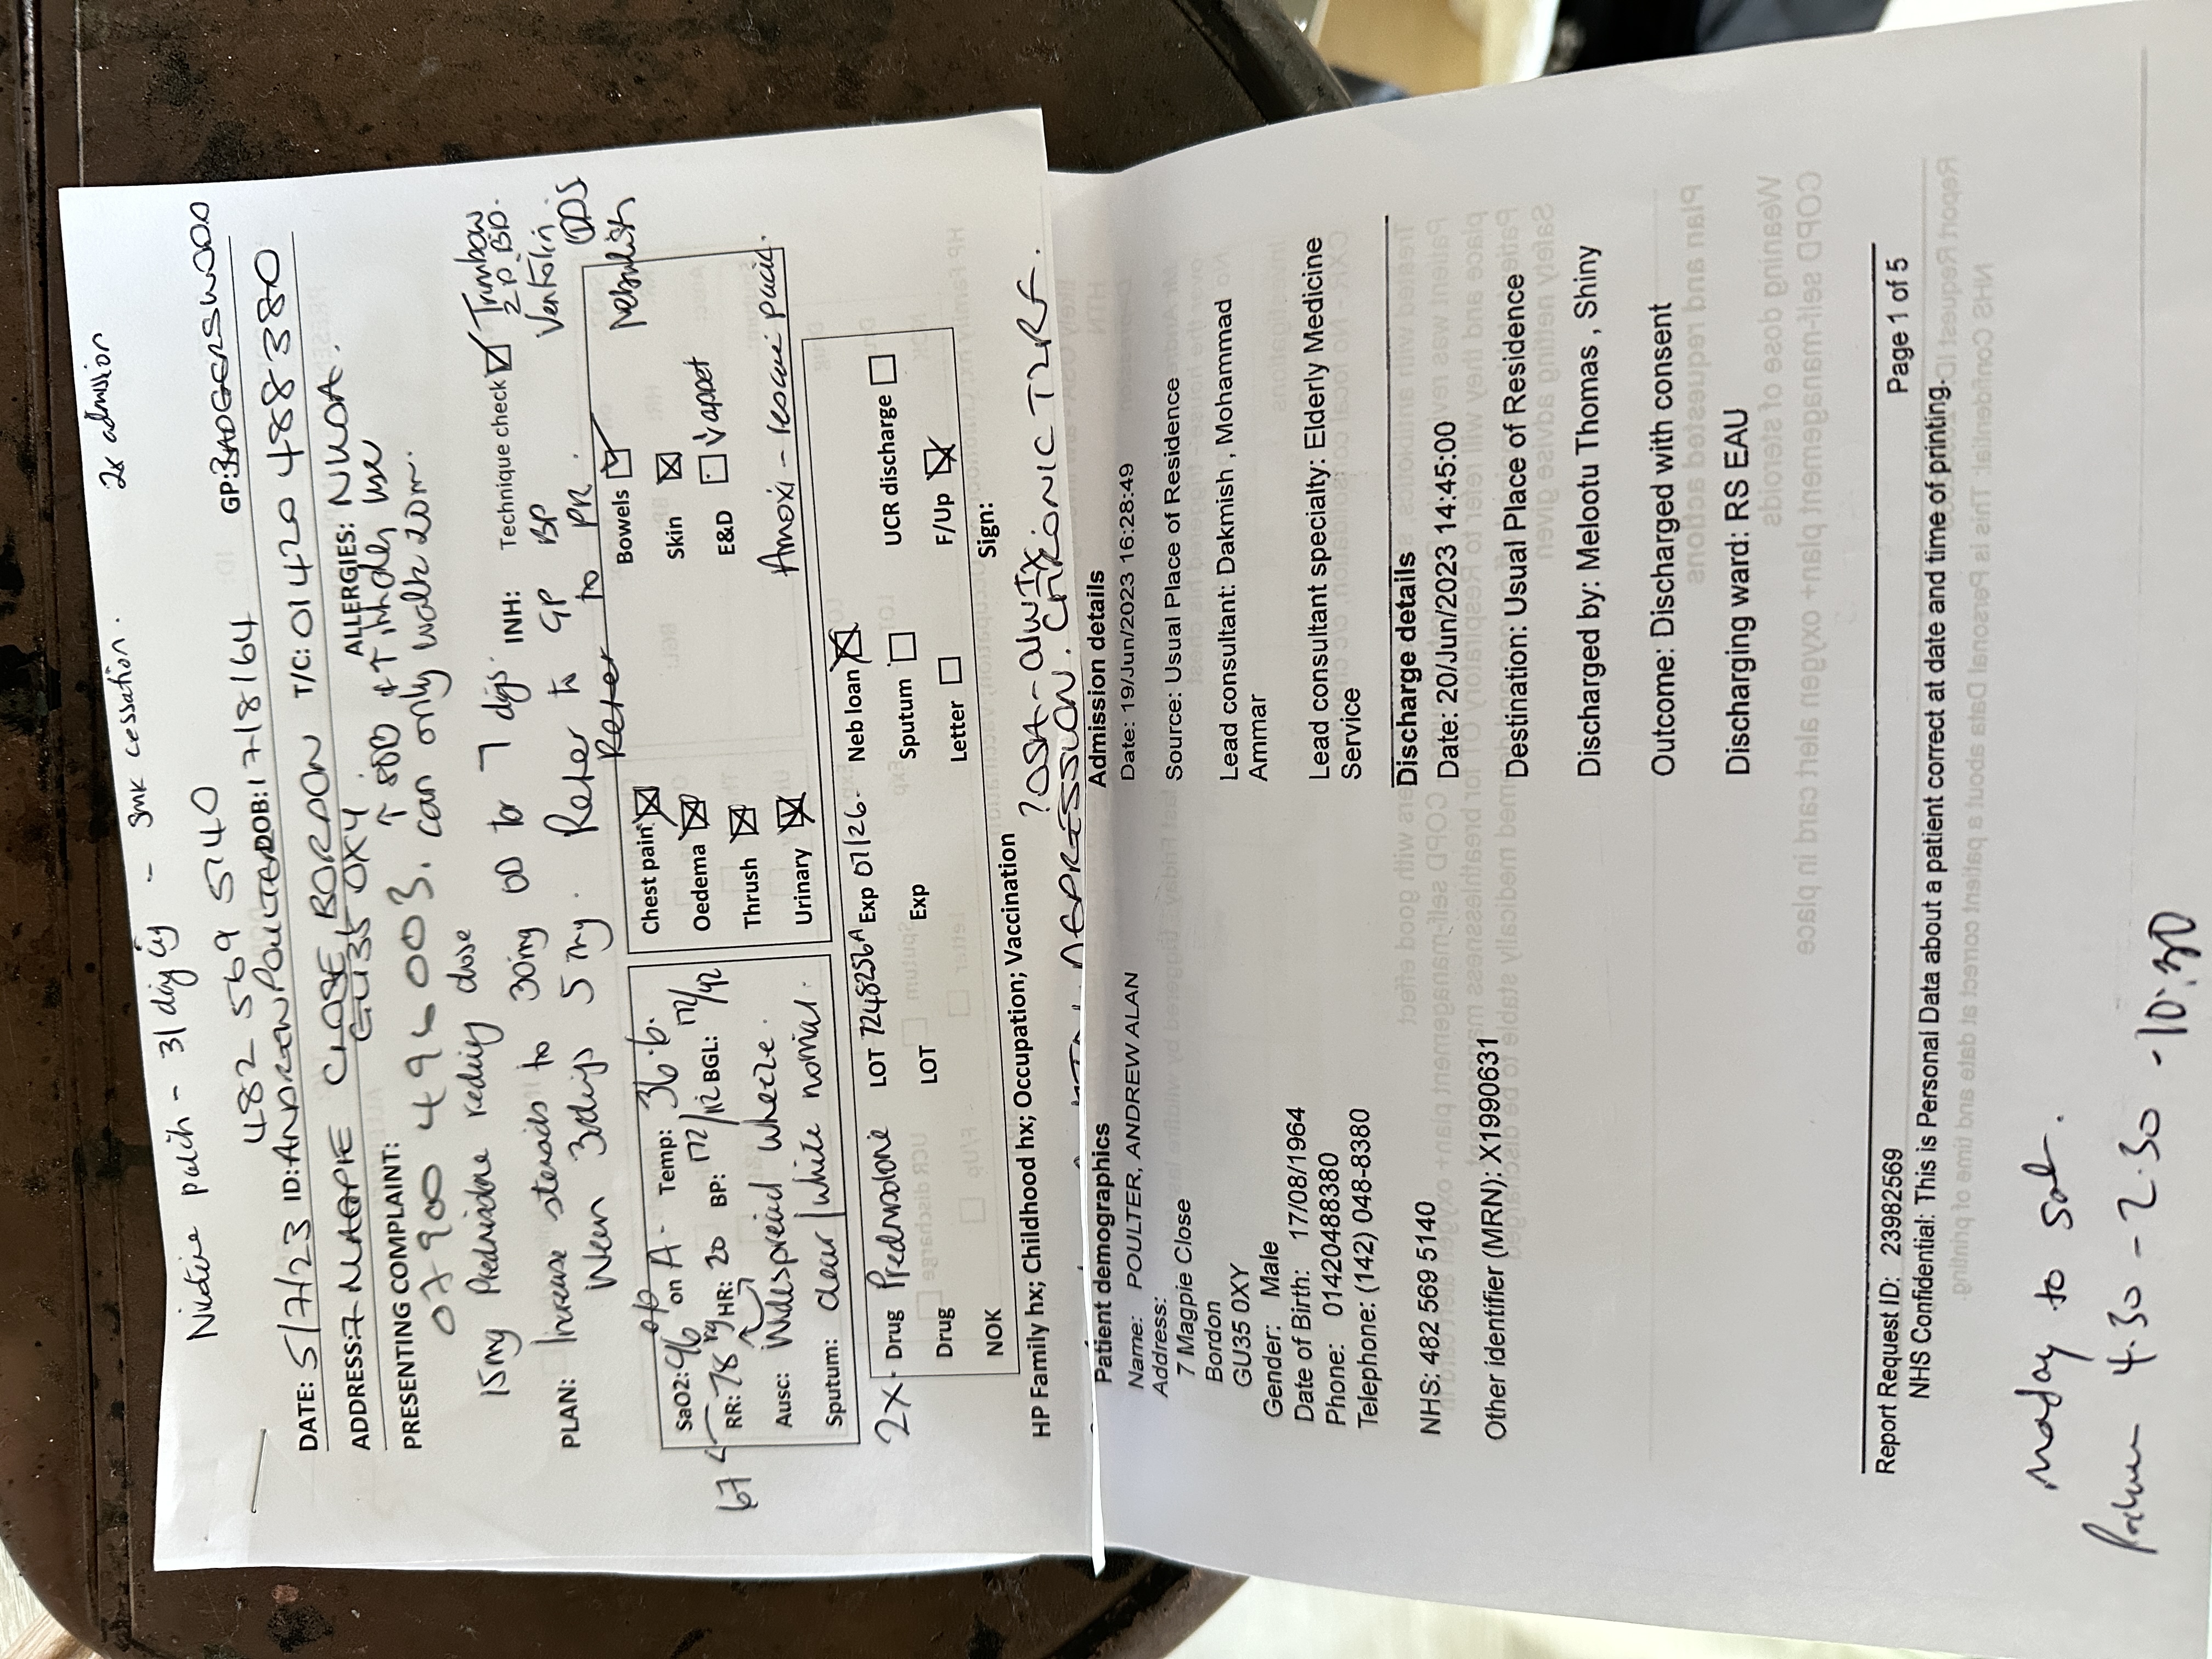 2x admission
Nicotine patch - 31 day cig - 3mk cessation.
482 569 5140 GP: BADGERSWOOD
DATE: 5/7/23 ID: ANDREW POULTER DOB: 17/8/64 T/C: 01420 488380
ADDRESS: 7 MAGPIE CLOSE BORDON GU35 0XY ALLERGIES: NKDA.
PRESENTING COMPLAINT: ↑ SOB + ↑ inhaler use
07900 496003. can only walk 20m.
15mg Prednisolone reducing dose
INH: Technique check Trimbow 2 P. BD.
Ventolin.
PLAN: Increase steroids to 30mg OD for 7 days. GP BP
Wean 3 days 5mg. Refer to GP
Refer to PR.
Nebuliser QDS
SaO2: 96% on A Temp: 36.6.
RR: 78 HR: 20 BP: 172/112 BGL: 172/92
67
Ausc: Widespread wheeze.
Sputum: clear/white normal.
Chest pain
Oedema
Thrush
Urinary
Bowels
Skin
E&D ↓ appet
Amoxi - rescue pack.
2x. Drug Prednisolone LOT 7248256A Exp 07/26. Neb loan
Drug LOT Exp Sputum UCR discharge
NOK Letter F/Up
Sign:
HP Family hx; Childhood hx; Occupation; Vaccination ?OSA - awIx
DEPRESSION. CHRONIC T2RF.
Patient demographics
Name: POULTER, ANDREW ALAN
Address:
7 Magpie Close
Bordon
GU35 0XY
Gender: Male
Date of Birth: 17/08/1964
Phone: 01420488380
Telephone: (142) 048-8380
NHS: 482 569 5140
Other identifier (MRN): X1990631
Admission details
Date: 19/Jun/2023 16:28:49
Source: Usual Place of Residence
Lead consultant: Dakmish , Mohammad
Ammar
Lead consultant specialty: Elderly Medicine
Service
Discharge details
Date: 20/Jun/2023 14:45:00
Destination: Usual Place of Residence
Discharged by: Melootu Thomas , Shiny
Outcome: Discharged with consent
Discharging ward: RS EAU
Report Request ID: 23982569 Page 1 of 5
NHS Confidential: This is Personal Data about a patient correct at date and time of printing.
Monday to Sat.
4.30 - 2.30 - 10:30